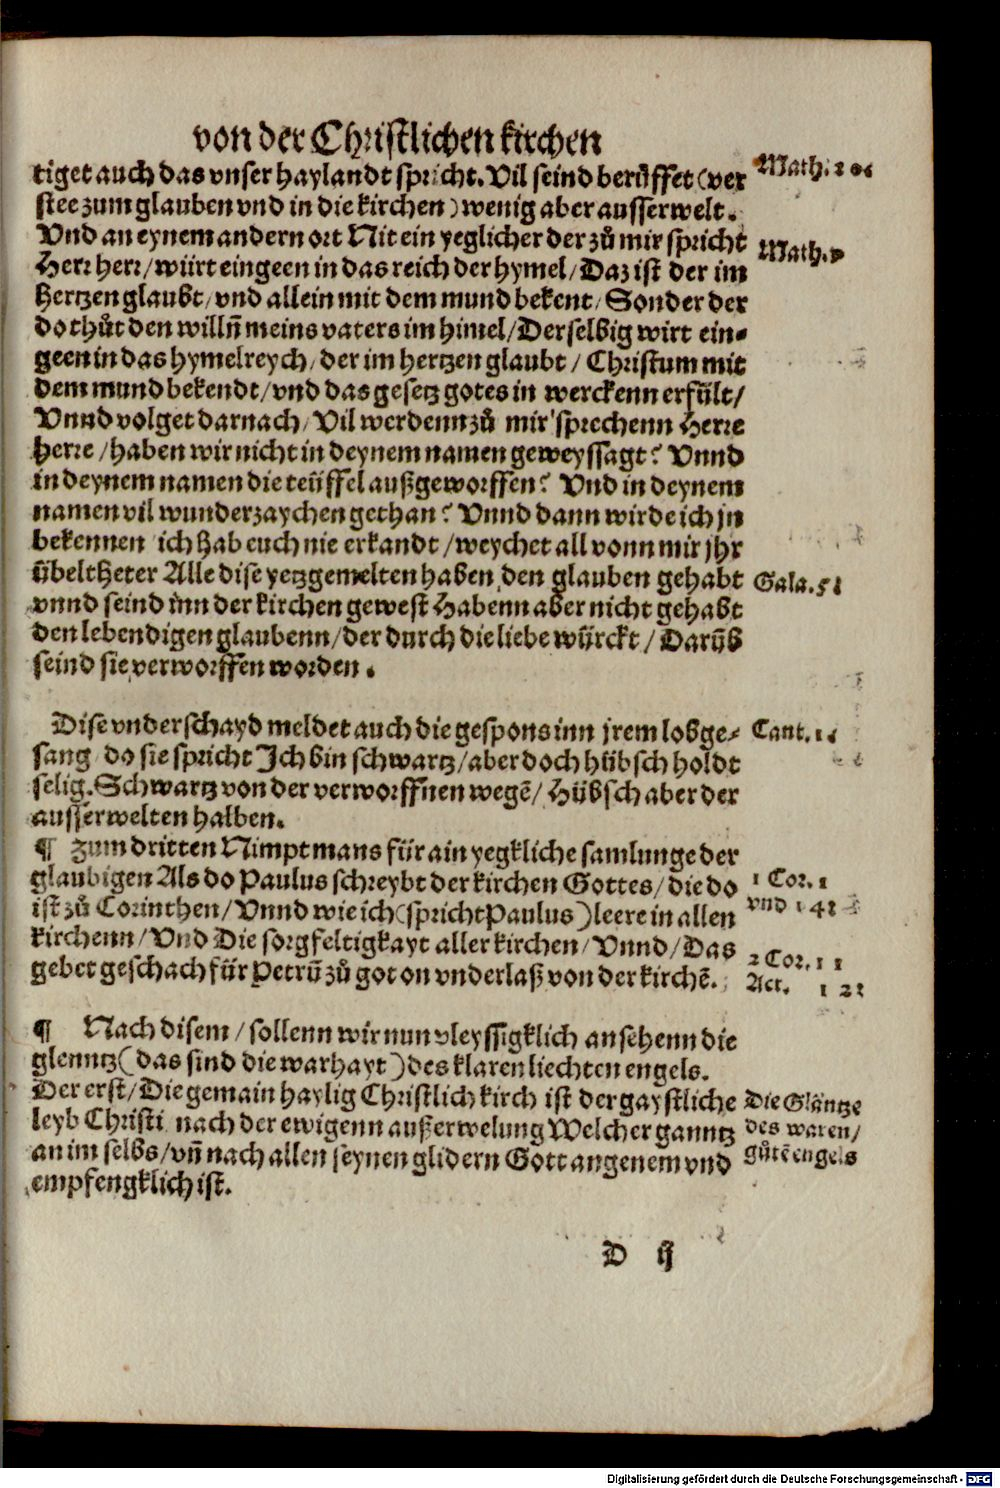 von der Christlichen kirchen
tiget auch das vnser haylandt spricht. Vil seind berůffet (ver
stee zum glauben vnd in die kirchen) wenig aber ausserwelt.
Vnd an eynem andern ort Nit ein yeglicher der zů mir spricht
Herr herr/ würt eingeen in das reich der hymel/ Daz ist der im
hertzen glaubt/ vnd allein mit dem mund bekent/ Sonder der
do thůt den willn̄ meins vaters im himel/ Derselbig wirt ein⸗
geen in das hymelreych/ der im hertzen glaubt / Christum mit
dem mund bekendt/ vnd das gesetz gotes in werckenn erfült/
Vnnd volget darnach/ Vil werdenn zů mir sprechenn Herre
herre / haben wir nicht in deynem namen geweyssagt? Vnnd
in deynem namen die teüffel außgeworffen? Vnd in deynem
namen vil wunderzaychen gethan? Vnnd dann wirde ich jn
bekennen ich hab euch nie erkandt / weychet all vonn mir jhr
übeltheter Alle dise yetzgemelten haben den glauben gehabt
vnnd seind inn der kirchen gewest Habenn aber nicht gehabt
den lebendigen glaubenn/ der durch die liebe würckt / Darūb
seind sie verworffen worden.
Math. 20
Math. 7
Gala. 5
Dise vnderschayd meldet auch die gespons inn jrem lobge⸗
sang/ do sie spricht Ich bin schwartz/ aber doch hübsch holdt
selig. Schwartz von der verworffnen wegē/ Hübsch aber der
ausserwelten halben.
Cant. 1
¶ Zum dritten Nimpt mans für ain yegkliche samlunge der
glaubigen Als do Paulus schreybt der kirchen Gottes/ die do
ist zů Corinthen/ Vnnd wie ich (spricht Paulus) leere in allen
kirchenn/ Vnd Die sorgfeltigkayt aller kirchen/ Vnnd/ Das
gebet geschach für Petrū zů got on vnderlaß von der kirchē.
1 Cor. 1
vnd 14
2 Cor. 11
Act. 12
¶ Nach disem / sollenn wir nun vleyssigklich ansehenn die
glenntz (das sind die warhayt) des klaren liechten engels.
Der erst/ Die gemain haylig Christlich kirch ist der gaystliche
leyb Christi nach der ewigenn außerwelung Welcher ganntz
an im selbs/ vn̄ nach allen seynen glidern Gott angenem vnd
empfengklich ist.
Die Gläntze
des waren/
gůtē engels
D ij
Digitalisierung gefördert durch die Deutsche Forschungsgemeinschaft - DFG